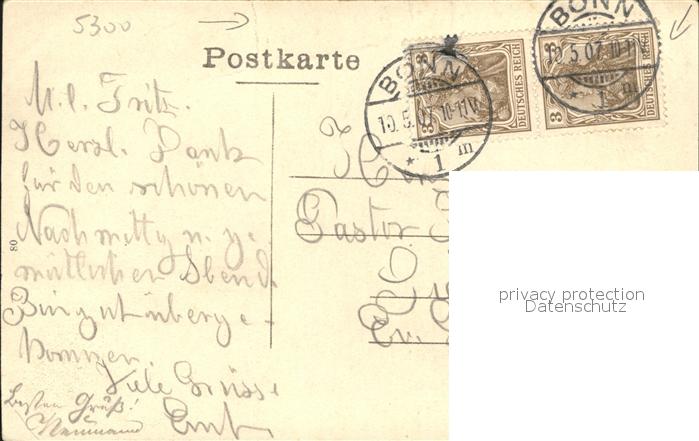 5300
Postkarte
BONN
10.5.07.10-11V.
* 1 m
BONN
10.5.07.10-11V.
* 1 m
3 DEUTSCHES REICH
3 DEUTSCHES REICH
M. l. Fritz.
Herzl. Dank
für den schönen
Nachmittg u. ge-
mütlichen Abend.
Bin gut überge-
kommen.
Viele Grüsse
Ernst
Besten Gruß!
Neumann
80
Pastor
Ev.
privacy protection
Datenschutz